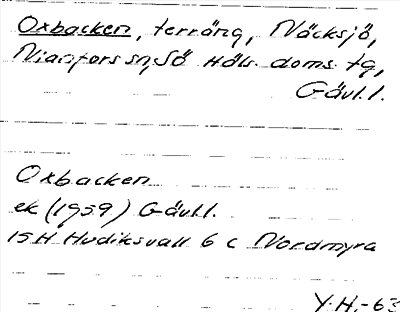 Oxbacken, terräng, Näcksjö,
Nianfors sn, Sö Häls. doms. tg,
Gävl.l.
Oxbacken
ek (1959) Gävl.l.
15H Hudiksvall 6 c Nordmyra
Y.H.-63